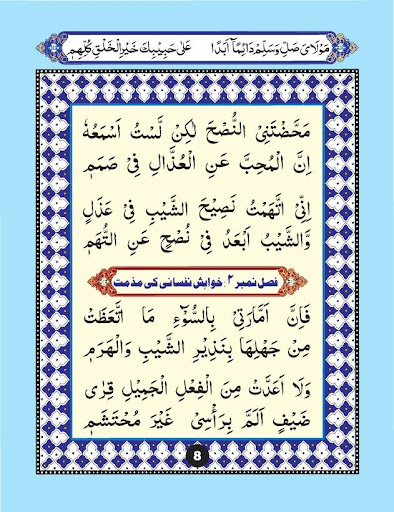 مَوْلَاىَ صَلِّ وَسَلِّمْ دَائِمًا اَبَدًا عَلٰى حَبِيْبِكَ خَيْرِ الْخَلْقِ كُلِّهِمٖ
مَحَّضْتَنِى النُّصْحَ لٰكِنْ لَّسْتُ اَسْمَعُهٗ
اِنَّ الْمُحِبَّ عَنِ الْعُذَّالِ فِىْ صَمَمٖ
اِنِّى اتَّهَمْتُ نَصِيْحَ الشَّيْبِ فِىْ عَذَلٖ
وَالشَّيْبُ اَبْعَدُ فِىْ نُصْحٍ عَنِ التُّهَمٖ
فصل نمبر ۲: خواہش نفسانی کی مذمت
فَاِنَّ اَمَّارَتِىْ بِالسُّوْٓءِ مَا اتَّعَظَتْ
مِنْ جَهْلِهَا بِنَذِيْرِ الشَّيْبِ وَالْهَرَمٖ
وَلَا اَعَدَّتْ مِنَ الْفِعْلِ الْجَمِيْلِ قِرٰى
ضَيْفٍ اَلَمَّ بِرَأْسِىْ غَيْرَ مُحْتَشَمٖ
8